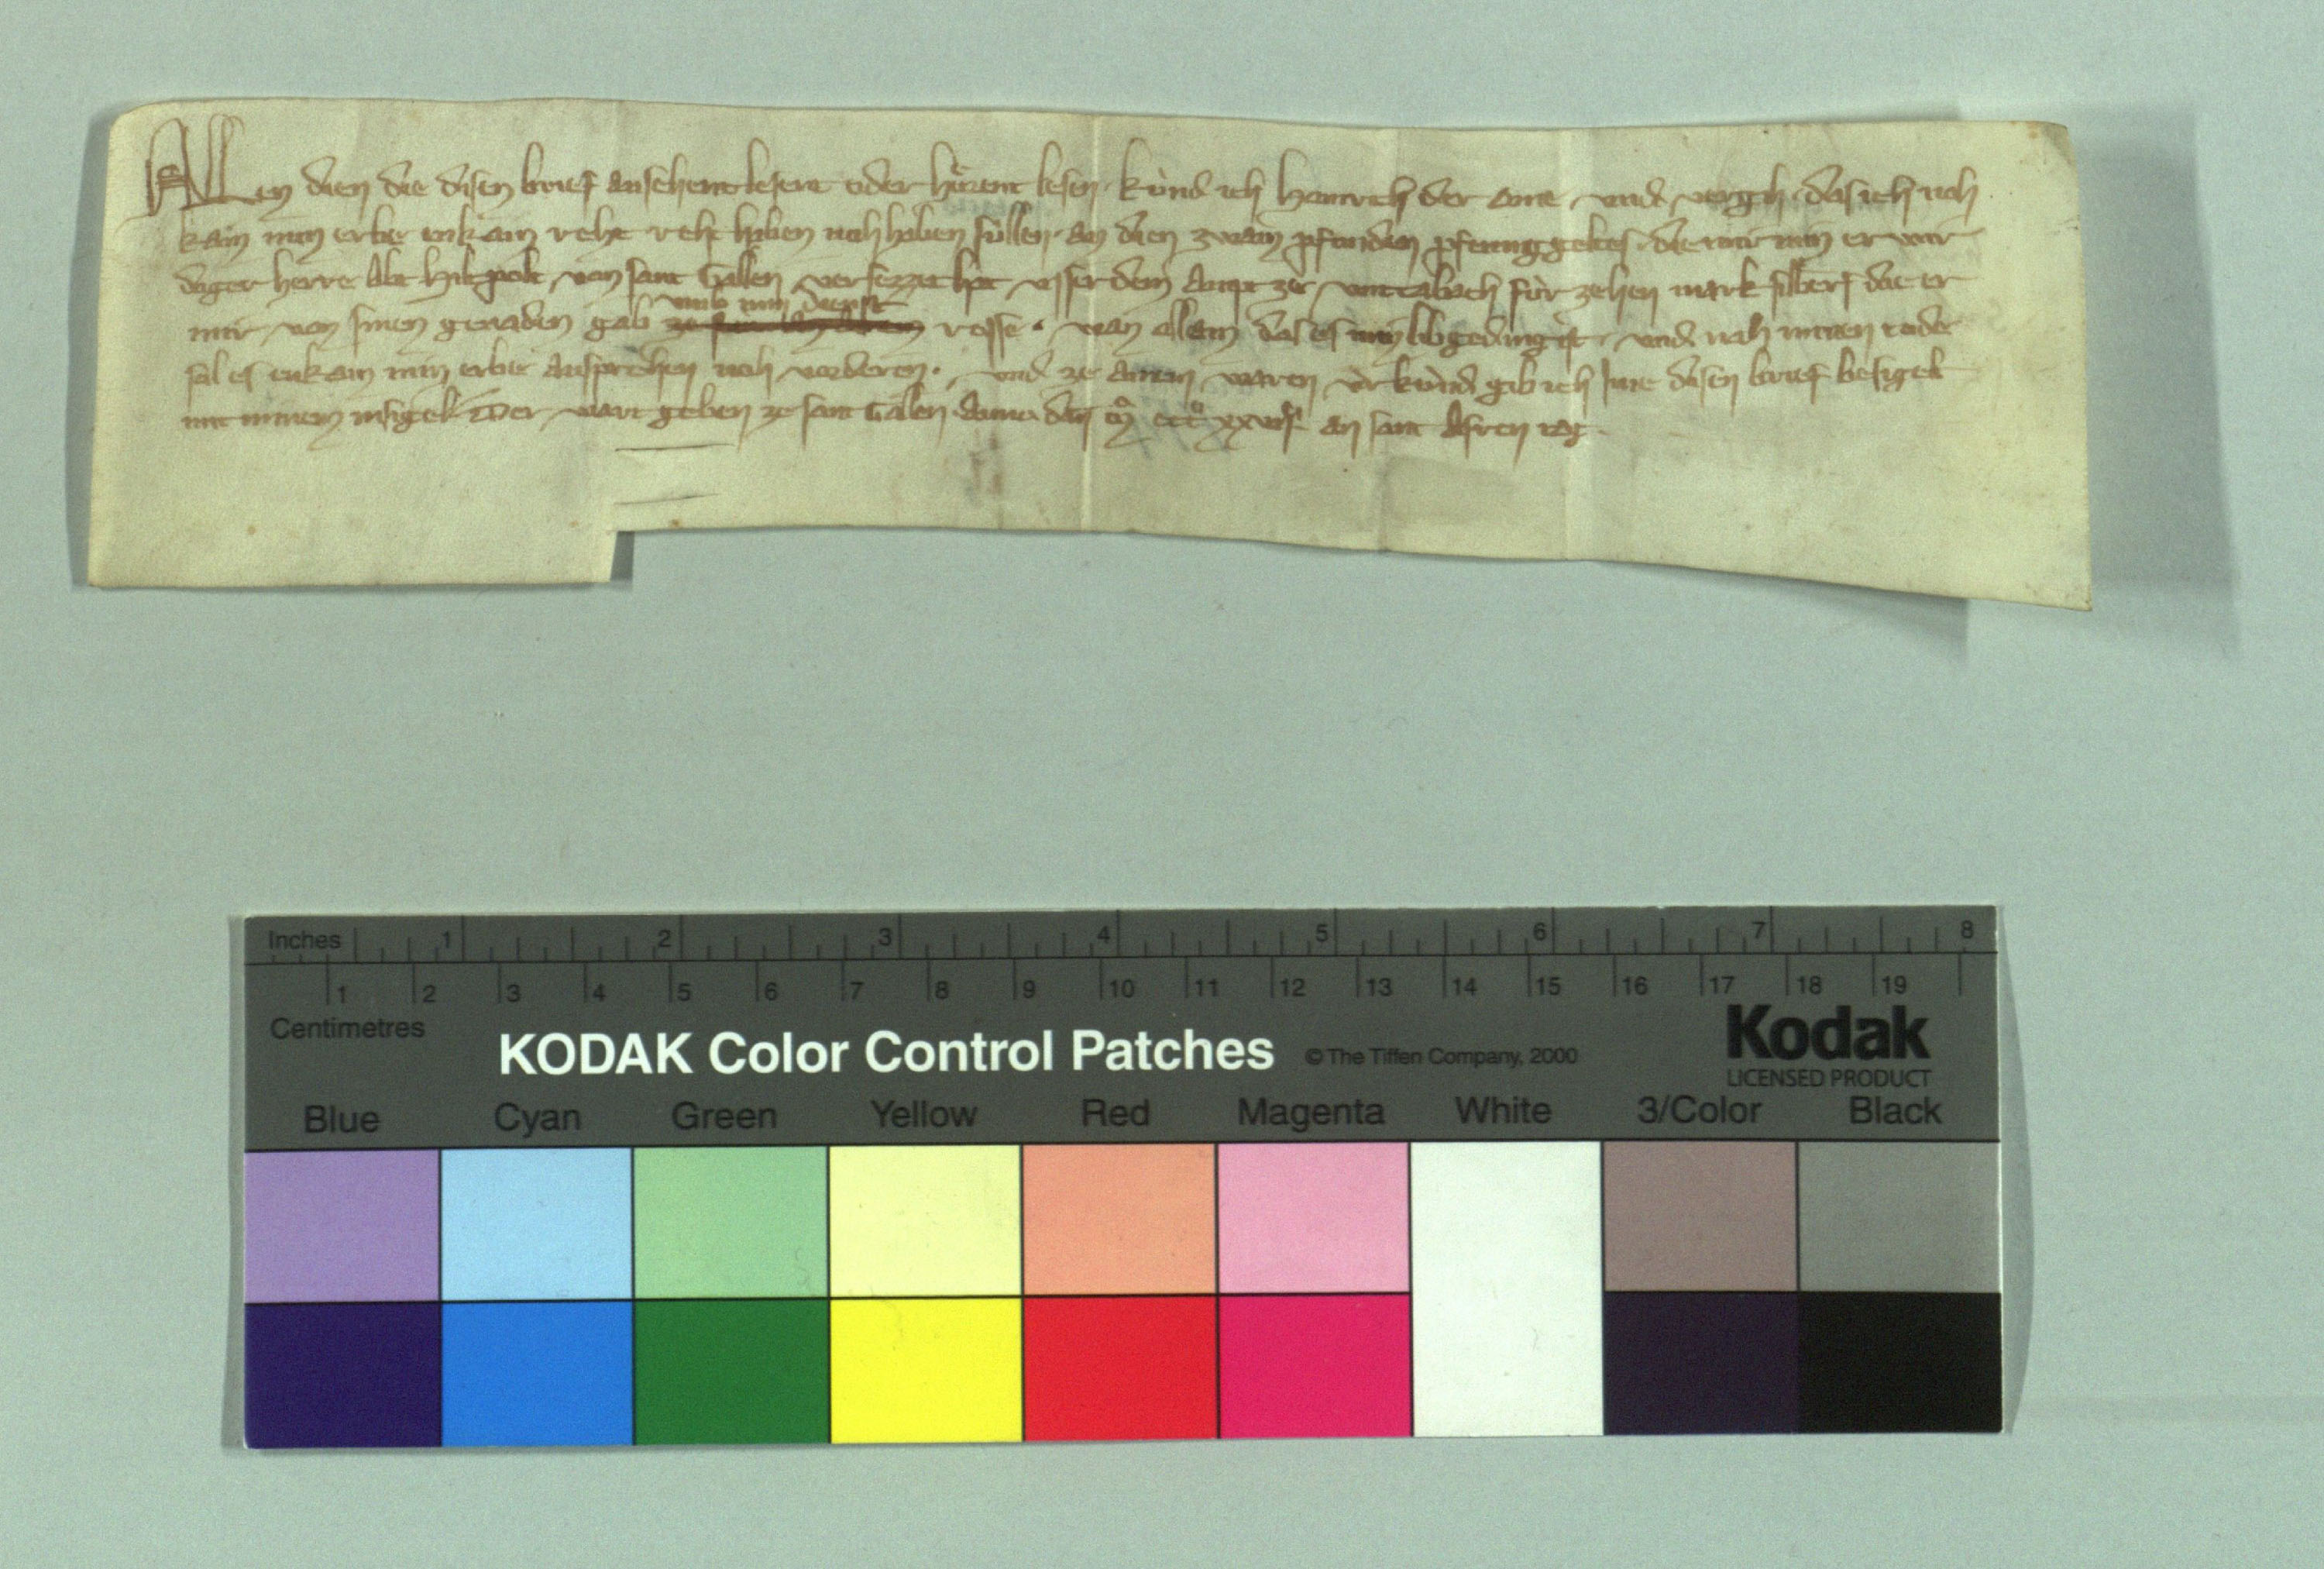 ALLen dien die disen brief ansehent lesent oder hoͤrent lesen · kúnd ich Hainrich der ome · vnd vergih · das ich noh
kain min erbe enkain reht reht haben noh haben súllen · an dien zwain pfunden pfenninggeltes · die mir min erwir
diger herre Abt Hiltpolt von sant Gallen versezzet hat vsser dem Ampt ze wittabach fúr zehen mark silbers die er
vmb min dienst
mir von sinen genaden gab rosse · wan allain das es min libgeding ist · vnd nah minen tode
sol es enkain min erbe ansprechen noh vorderen · vnd ze ainem waren vrkúnd gib ich Ime disen brief besigelt
mit minem insigel Der wart geben ze sant Gallen an sant Afren tag ·
Inches 1 2 3 4 5 6 7 8
1 2 3 4 5 6 7 8 9 10 11 12 13 14 15 16 17 18 19
Centimetres
KODAK Color Control Patches © The Tiffen Company, 2000
Kodak
LICENSED PRODUCT
Blue Cyan Green Yellow Red Magenta White 3/Color Black